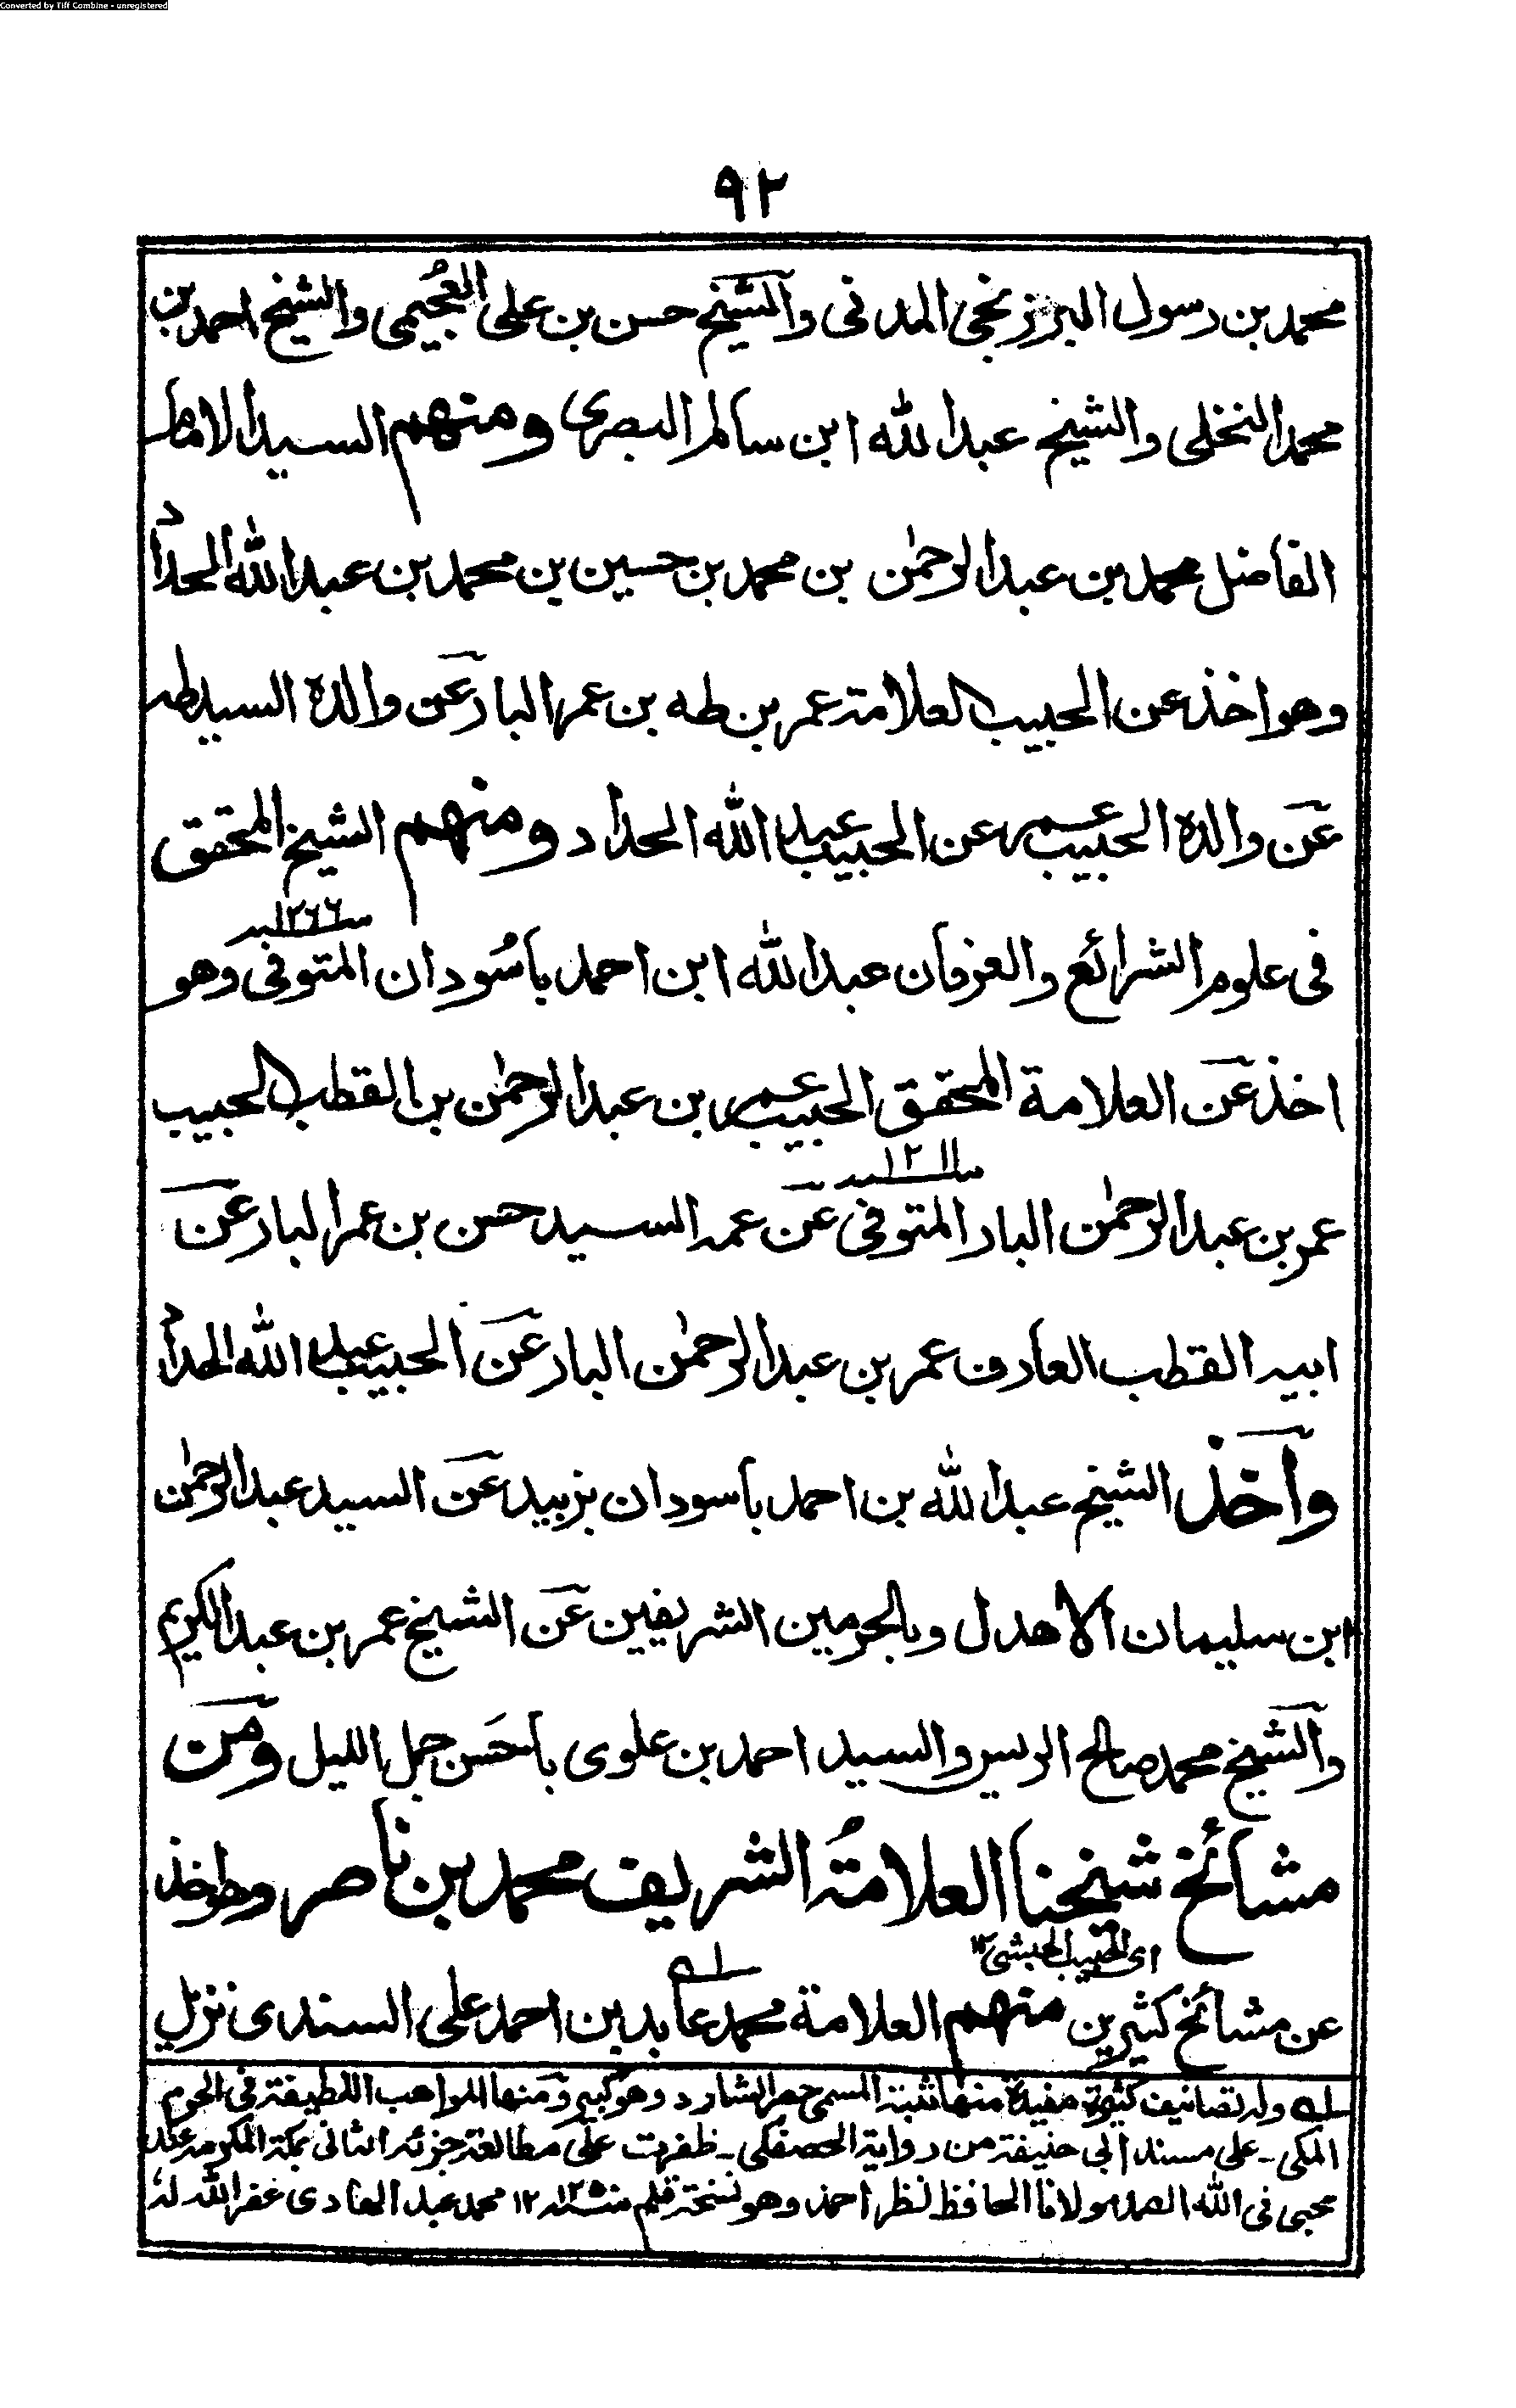 Converted by Tiff Combine - unregistered
٩٢
محمد بن رسول البرزنجي المدني والشيخ حسن بن علي العُجيمي والشيخ احمد بن
محمد النخلي والشيخ عبد الله ابن سالم البصري ومنهم السيد الامام
الفاضل محمد بن عبد الرحمٰن بن محمد بن حسين بن محمد بن عبد الله الحداد
وهو اخذ عن الحبيب العلامة عمر بن طه بن عمر البار عن والده السيد طه
عن والده الحبيب عمر عن الحبيب عبد الله الحداد ومنهم الشيخ المحقق
في علوم الشرائع والعرفان عبد الله ابن احمد باسُودان المتوفى سنة ١٢٦٦ وهو
اخذ عن العلامة المحقق الحبيب عمر بن عبد الرحمٰن بن القطب الحبيب
عمر بن عبد الرحمٰن البار المتوفى سنة ١٢١١ عن عمه السيد حسن بن عمر البار عن
ابيه القطب العارف عمر بن عبد الرحمٰن البار عن الحبيب عبد الله الحداد
وأخذ الشيخ عبد الله بن احمد باسودان بزبيد عن السيد عبد الرحمٰن
ابن سليمان الاهدل وبالحرمين الشريفين عن الشيخ عمر بن عبد الكريم
والشيخ محمد صالح الريس والسيد احمد بن علوي باحَسن جمل الليل ومن
مشائخ شيخنا العلامةُ الشريف محمد بن ناصر وهو اخذ
اى الحبيب الحبشي ١٢
عن مشائخ كثيرين منهم العلامة محمد عابد بن احمد علي السندي نزيل
له وله تصانيف كثيرة مفيدة منها ثبته المسمى حصر الشارد وهو كبير ومنها المواهب اللطيفة في الحرم
المكي - على مسند ابي حنيفة من رواية الحصفكي - ظفرت على مطالعة جزئه الثاني بمكة المكرمة عند
محبي في الله الصمد مولانا الحافظ نظر احمد وهو نسخة قلم ١٢ محمد عبد الهادي غفر الله لهٗ